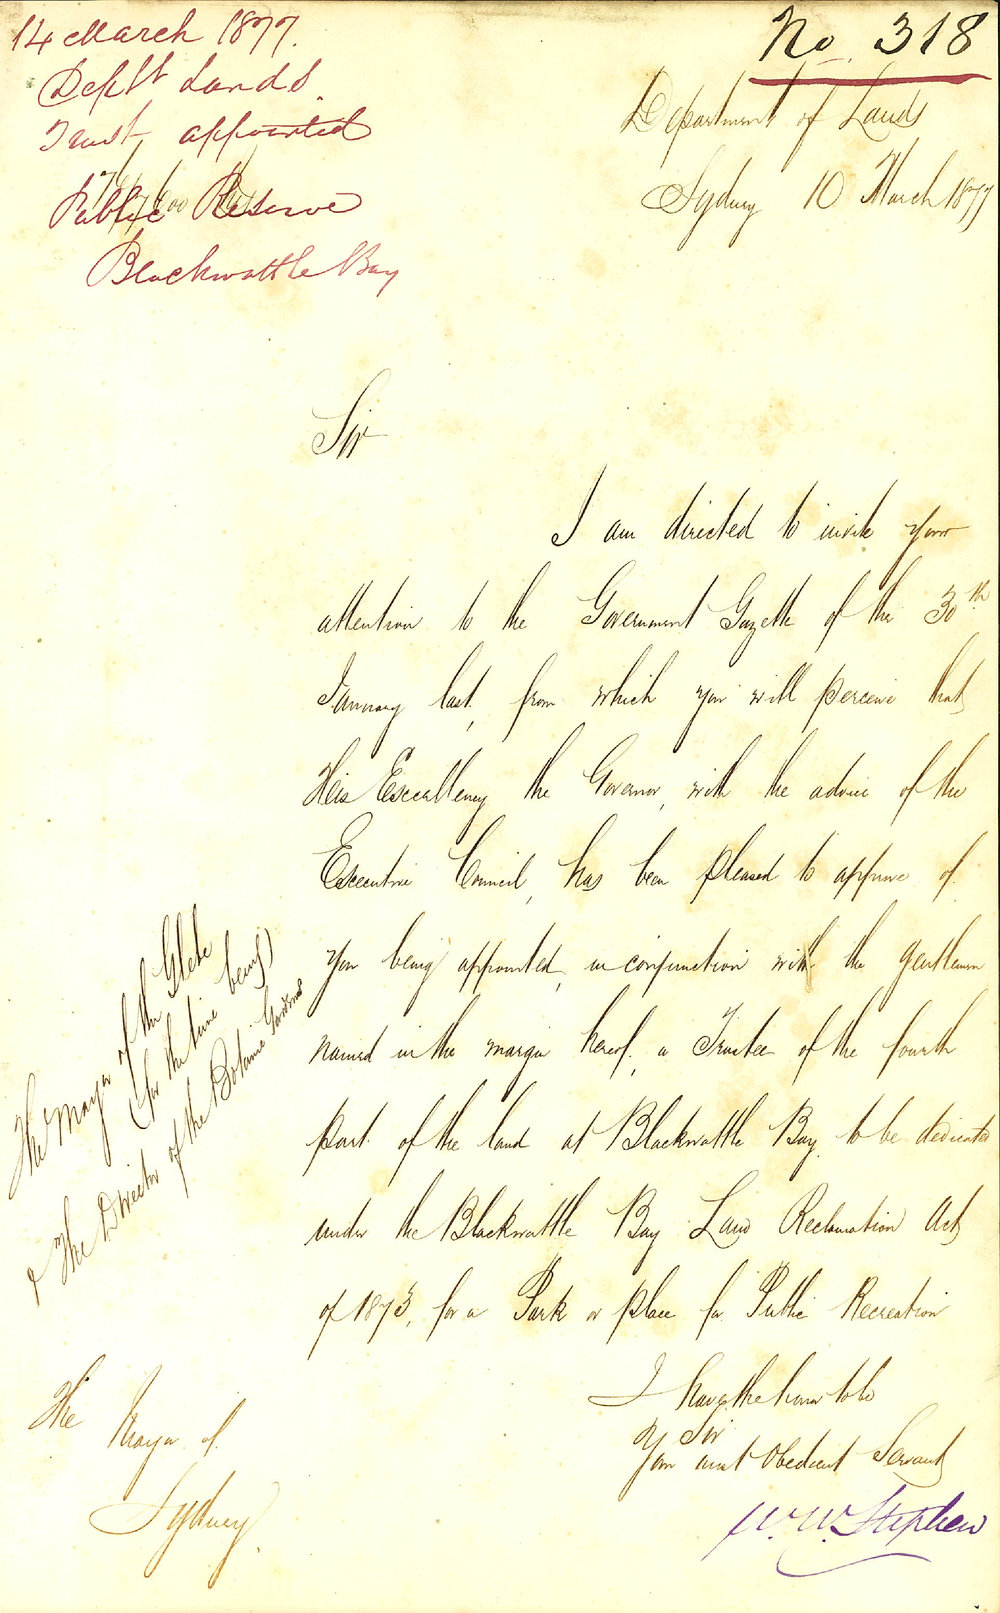 14 March 1877.
Deptt Lands.
Trust appointed
Public Reserve
Blackwattle Bay
No. 318
Department of Lands
Sydney 10 March 1877
Sir
I am directed to invite your
attention to the Government Gazette of the 30th
January last, from which you will perceive that
His Excellency the Governor, with the advice of the
Executive Council, has been pleased to approve of
you being appointed, in conjunction with the gentlemen
named in the margin hereof, a Trustee of the fourth
part of the land at Blackwattle Bay, to be dedicated
under the Blackwattle Bay Land Reclamation Act
of 1873, for a Park or place for Public Recreation
The Mayor of the Glebe
(for the time being)
& The Director of the Botanic Gardens
I have the honor to be
Sir
Your most Obedient Servant
W. W. Stephen
The
Mayor of
Sydney.